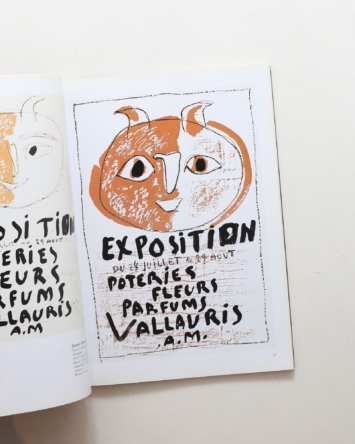 OSITION
29 AOUT
TERIES
EURS
RFUMS
LLAURIS
A.M
EXPOSITION
DU 24 JUILLET AU 29 AOUT
POTERIES
FLEURS
PARFUMS
VALLAURIS
.A.M.